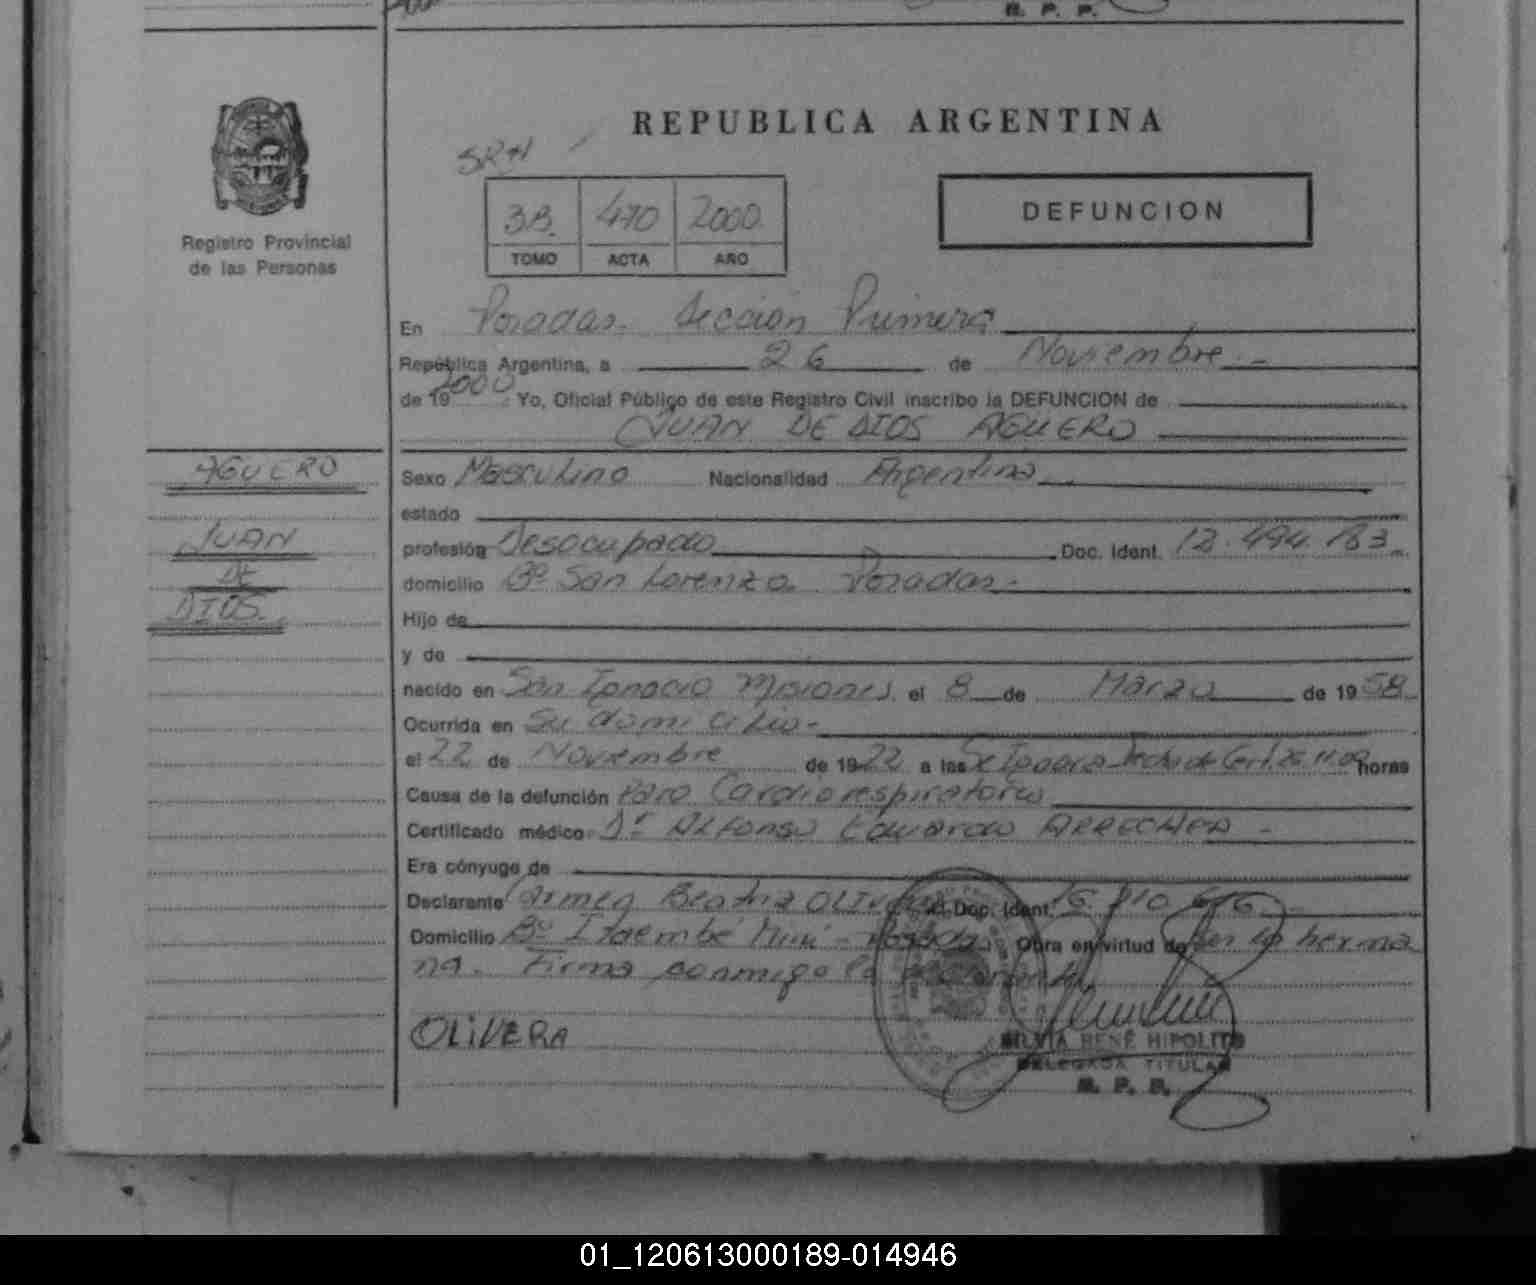 R. P. P.
REPUBLICA ARGENTINA
SRH
3B. 470 2000
TOMO ACTA AÑO
DEFUNCION
Registro Provincial
de las Personas
En Posadas. Sección Primera
República Argentina, a 26 de Noviembre.-
de 19 2000. Yo, Oficial Público de este Registro Civil inscribo la DEFUNCION de
JUAN DE DIOS AGUERO
AGUERO
JUAN
DE
DIOS.
Sexo Masculino Nacionalidad Argentina
estado
profesión Desocupado Doc. Ident. 12.494.183
domicilio Bº San Lorenzo. Posadas.-
Hijo de
y de
nacido en San Ignacio Misiones. el 8 de Marzo de 19 58
Ocurrida en su domicilio-
el 22 de Noviembre de 19 22 a las Se Ignora Fecha de Cert. 26.11.00 horas
Causa de la defunción Paro Cardiorespiratorio
Certificado médico Dr ALFONSO Eduardo ARRECHEA -
Era cónyuge de
Declarante Carmen Beatriz OLIVERA Doc. Ident. 16. 610
Domicilio Bº Itaembé Miní - Posadas. Obra en virtud de ser la herma
na. Firma conmigo la declarante
OLIVERA
SILVIA RENÉ HIPOLITO
DELEGADA TITULAR
R. P. P.
01_120613000189-014946